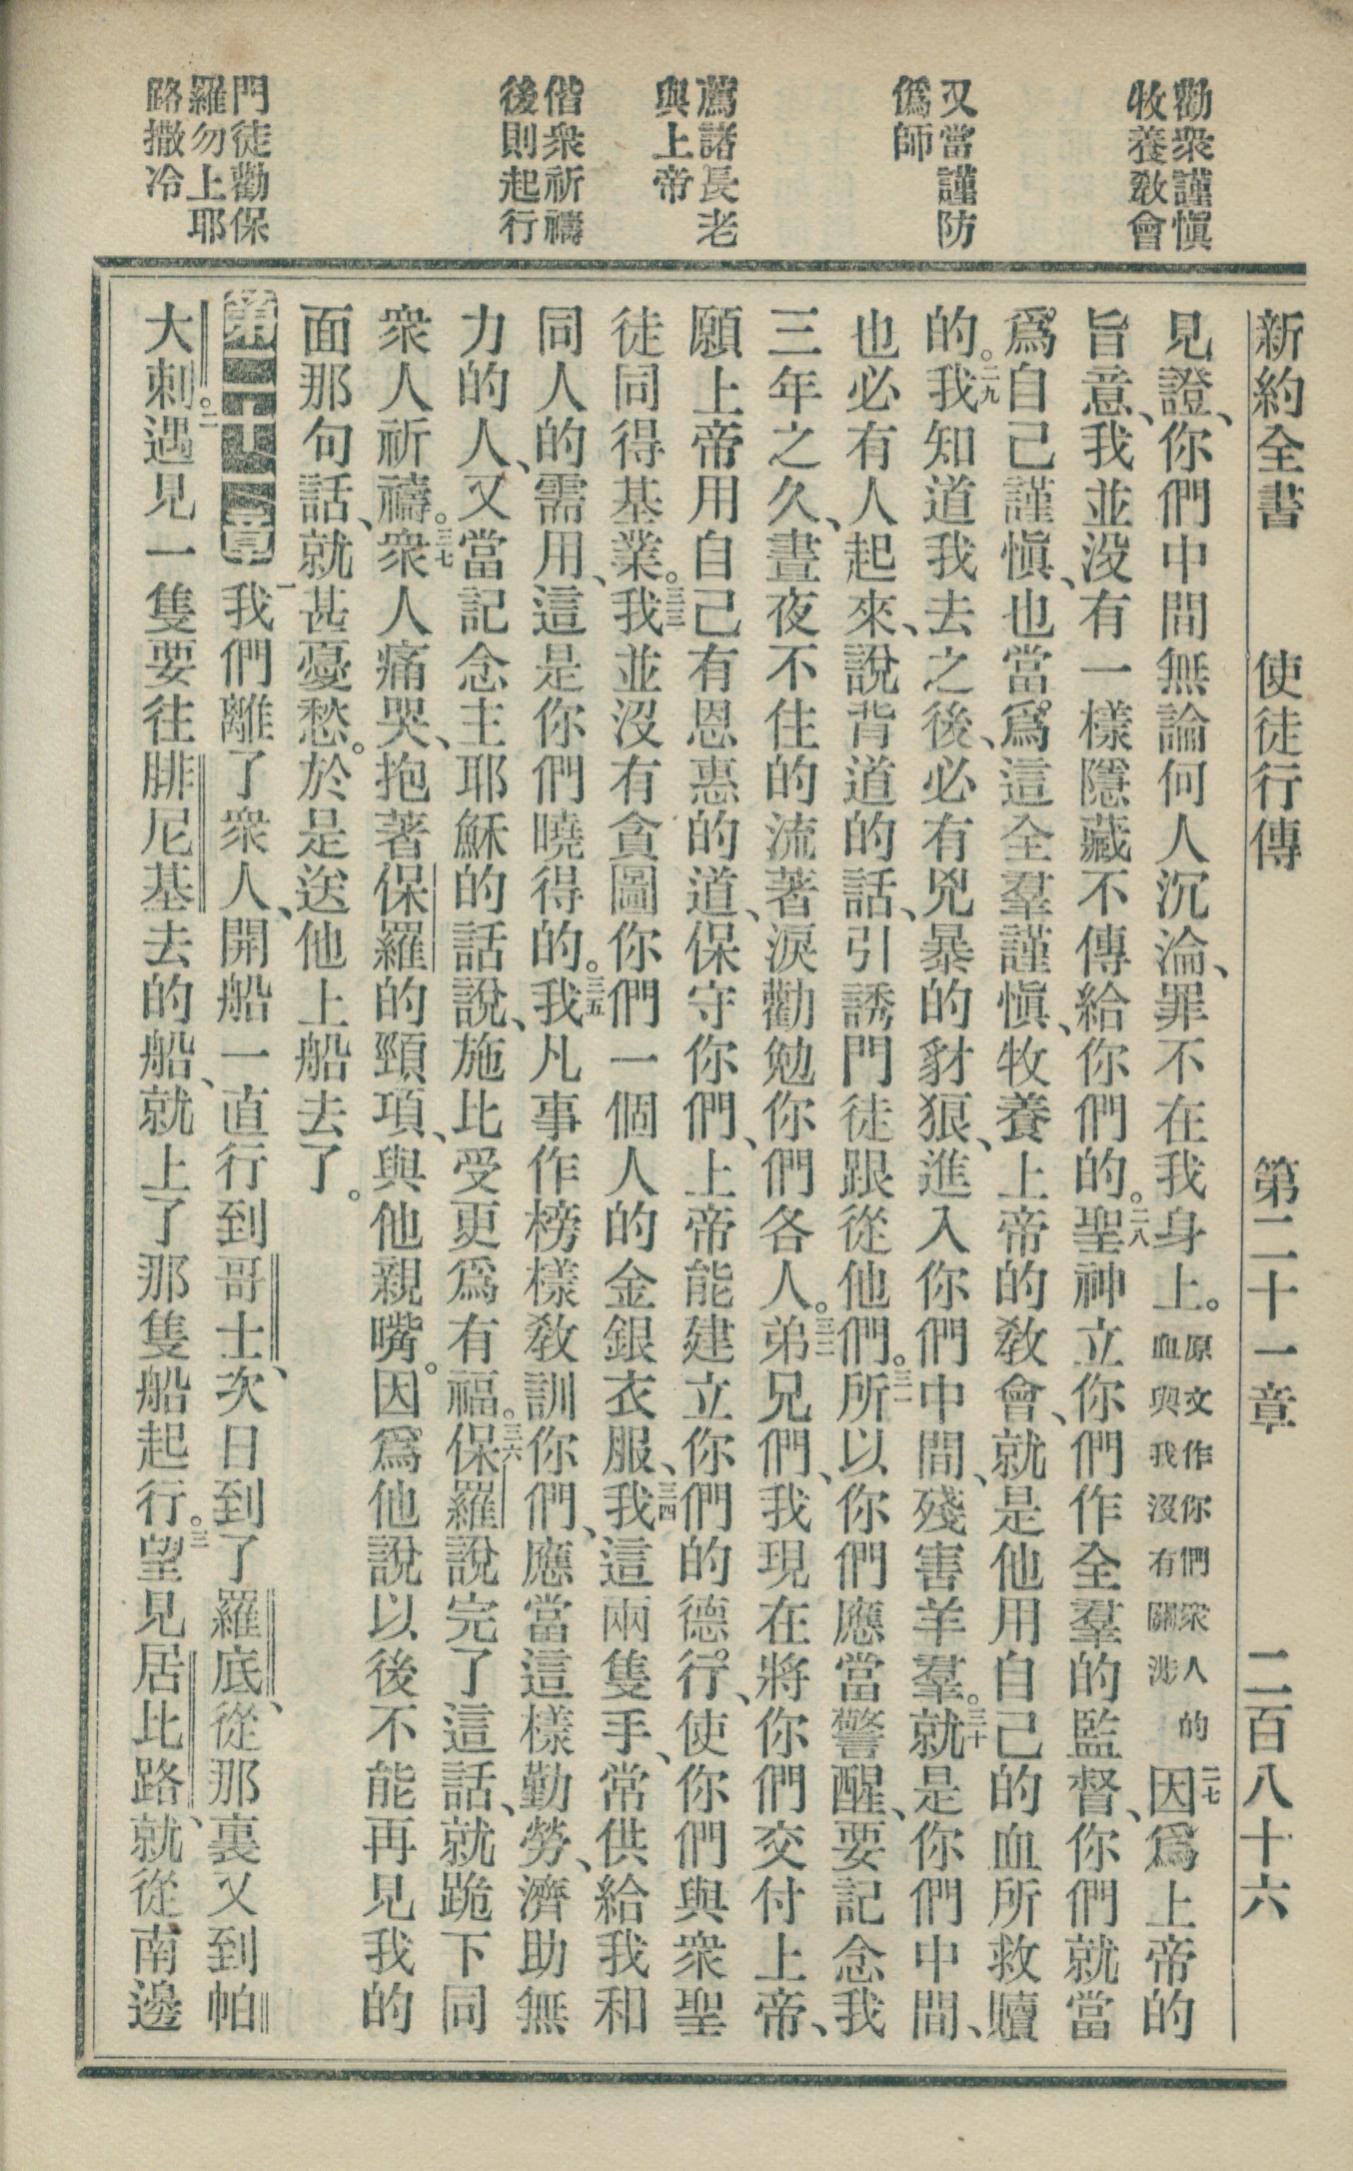 勸衆謹愼
牧養敎會
又當謹防
僞師
薦諸長老
與上帝
偕衆祈禱
後則起行
門徒勸保
羅勿上耶
路撒冷
新約全書 使徒行傳 第二十一章 二百八十六
見證、你們中間無論何人沉淪、罪不在我身上。原文作你們衆人的血與我沒有關涉二七因爲上帝的
旨意、我並没有一樣隱藏不傳給你們的。二八聖神立你們作全羣的監督、你們就當
爲自己謹愼、也當爲這全羣謹愼、牧養上帝的敎會、就是他用自己的血所救贖
的。二九我知道我去之後、必有兇暴的豺狼、進入你們中間、殘害羊羣。三十就是你們中間、
也必有人起來、說背道的話、引誘門徒跟從他們。三一所以你們應當警醒、要記念我
三年之久、晝夜不住的流著淚勸勉你們各人。三二弟兄們、我現在將你們交付上帝、
願上帝用自己有恩惠的道、保守你們、上帝能建立你們的德行、使你們與衆聖
徒同得基業。三三我並沒有貪圖你們一個人的金銀衣服、三四我這兩隻手、常供給我和
同人的需用、這是你們曉得的。三五我凡事作榜樣敎訓你們、應當這樣勤勞、濟助無
力的人、又當記念主耶穌的話說、施比受更爲有福。三六保羅說完了這話、就跪下同
衆人祈禱。三七衆人痛哭、抱著保羅的頸項、與他親嘴。因爲他說以後不能再見我的
面那句話、就甚憂愁。於是送他上船去了。
第二十一章 一我們離了衆人、開船一直行到哥士、次日到了羅底、從那裏又到帕
大刺。二遇見一隻要往腓尼基去的船、就上了那隻船起行。三望見居比路、就從南邊